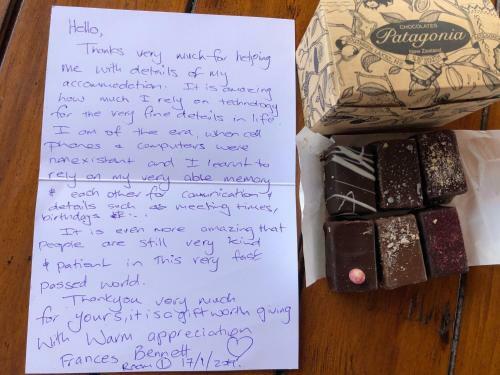 Hello,
Thanks very much for helping
me with details of my
accommodation. It is amazing
how much I rely on technology
for the very fine details in life.
I am of the era, when cell
phones & computers were
nonexistant and I learnt to
rely on my very able memory
& each other for comunication &
details such as meeting times,
birthdays
It is even more amazing that
people are still very kind
& patient in this very fast
passed world.
Thankyou very much
for yours, it is a gift worth giving
With Warm appreciation
Frances Bennett
Room 1 17/9/
CHOCOLATES
Patagonia
New Zealand